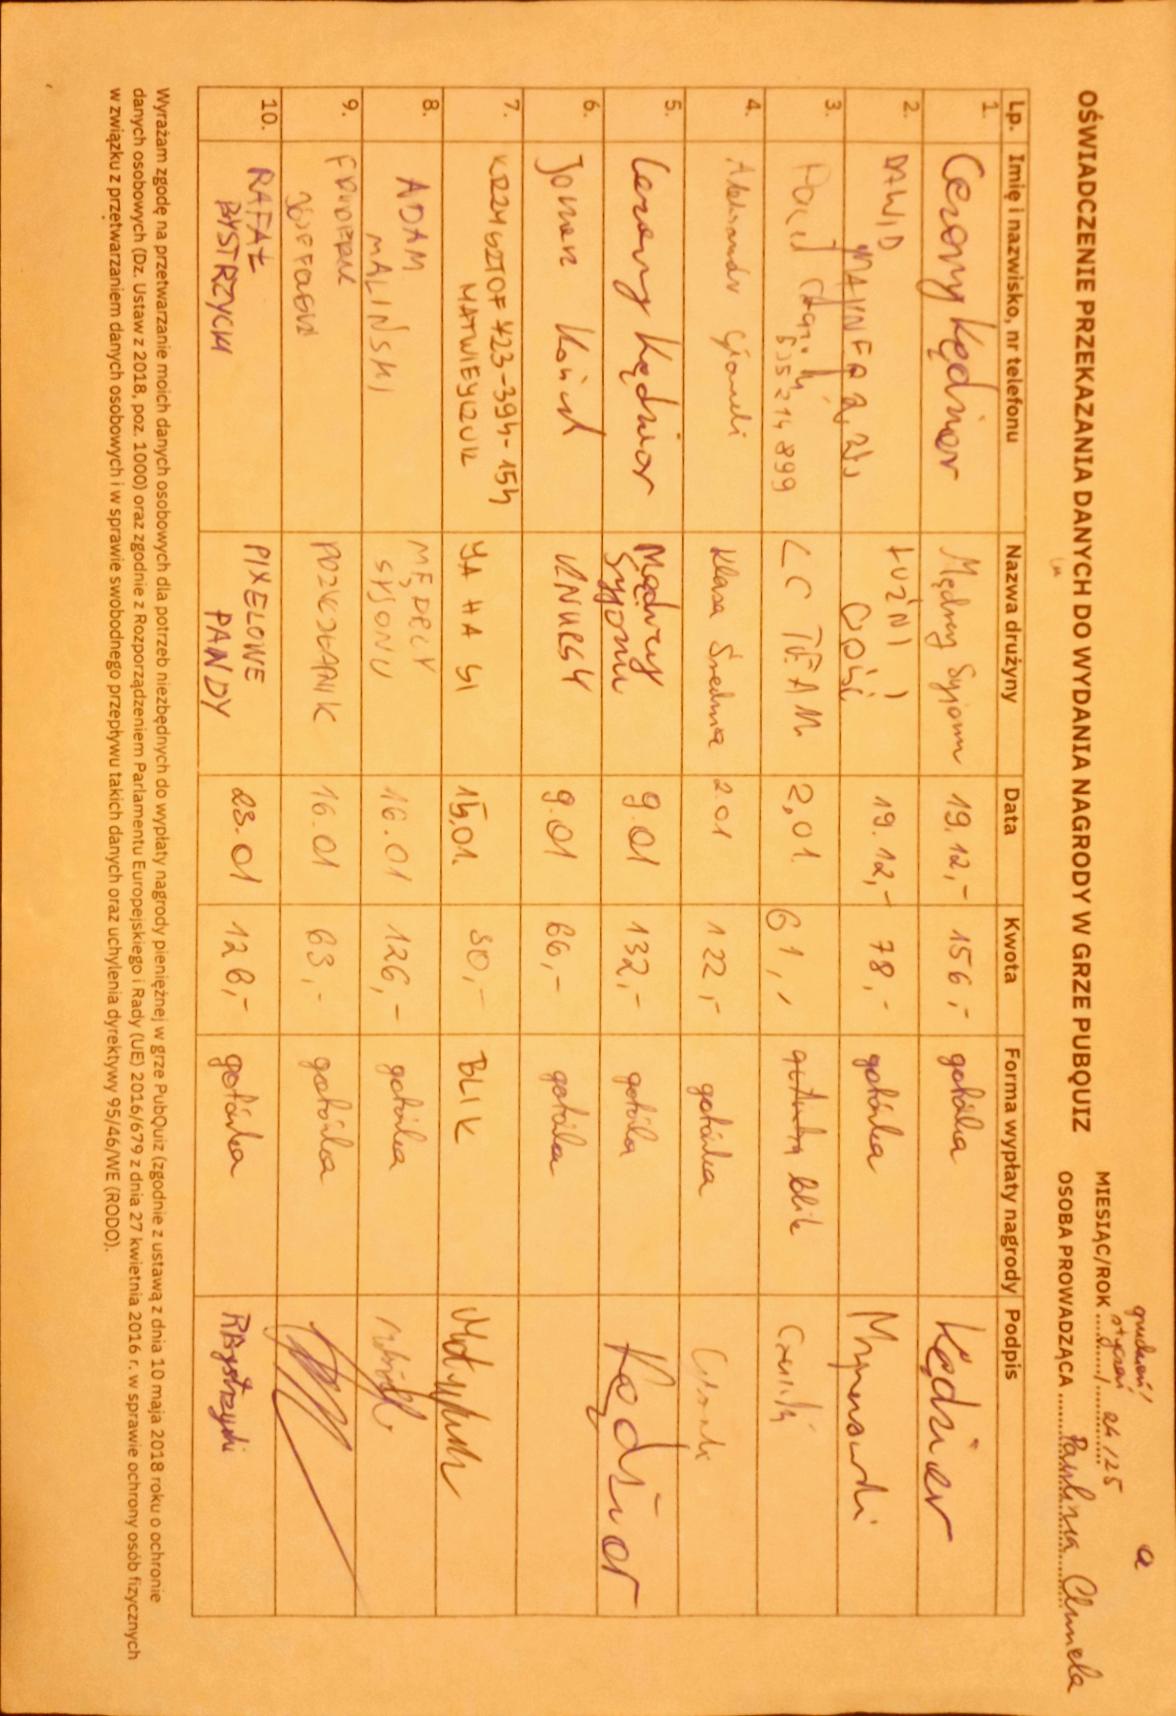 OŚWIADCZENIE PRZEKAZANIA DANYCH DO WYDANIA NAGRODY W GRZE PUBQUIZ
grudzień/
styczeń
MIESIĄC/ROK ......./........ 24/25
OSOBA PROWADZĄCA ........ Paulina Chmela
Lp. Imię i nazwisko, nr telefonu Nazwa drużyny Data Kwota Forma wypłaty nagrody Podpis
1. Cezary Kędzior Mędrcy Syjonu 19.12,- 156,- gotówka Kędzior
2. DAWID LUŹNI 19.12,- 78,- gotówka
GOŚCIE
3. LC TEAM 2,01. 61,- blik
635214899
4. Aleksander Klasa Średnia 2.01 122,- gotówka
5. Cezary Kędzior Mędrcy Syjonu 9.01 132,- gotówka Kędzior
6. 9.01 66,- gotówka
7. KRZYSZTOF 423-394-154 YA HA SI 15.01. 30,- BLIK
MATWIEJCZUK
8. ADAM MALIŃSKI MĘDRCY SYJONU 16.01 126,- gotówka
9. 16.01 63,- gotówka
10. RAFAŁ BYSTRZYCKI PIXELOWE PANDY 23.01 126,- gotówka RBystrzycki
Wyrażam zgodę na przetwarzanie moich danych osobowych dla potrzeb niezbędnych do wypłaty nagrody pieniężnej w grze PubQuiz (zgodnie z ustawą z dnia 10 maja 2018 roku o ochronie
danych osobowych (Dz. Ustaw z 2018, poz. 1000) oraz zgodnie z Rozporządzeniem Parlamentu Europejskiego i Rady (UE) 2016/679 z dnia 27 kwietnia 2016 r. w sprawie ochrony osób fizycznych
w związku z przetwarzaniem danych osobowych i w sprawie swobodnego przepływu takich danych oraz uchylenia dyrektywy 95/46/WE (RODO).